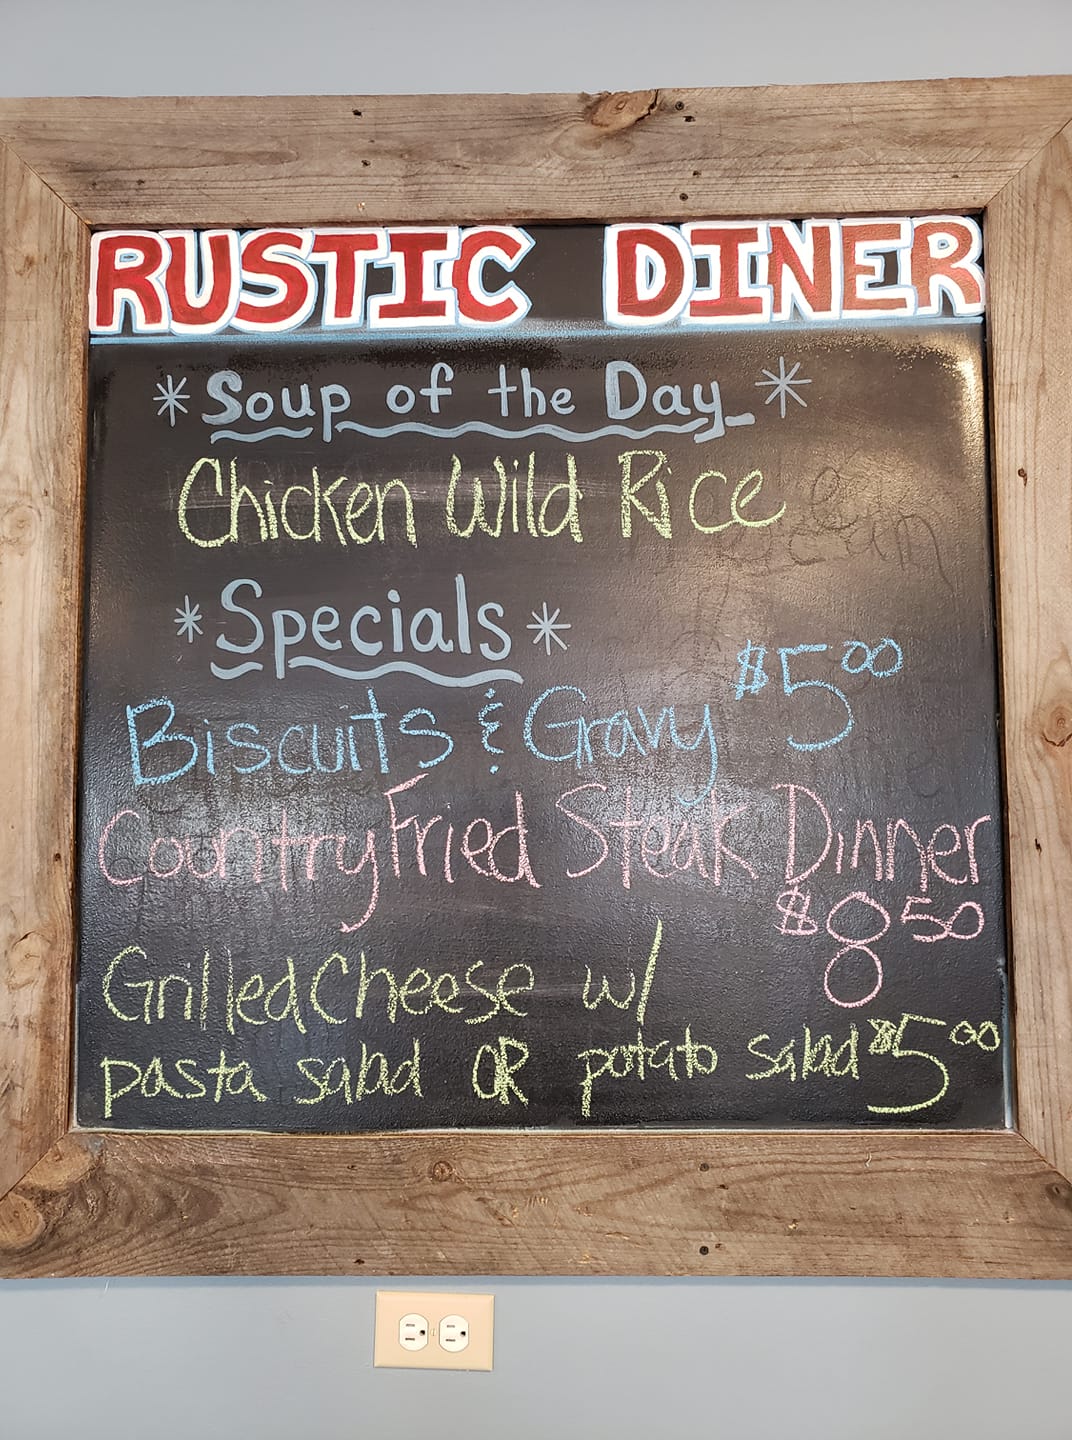 RUSTIC DINER
* Soup of the Day *
Chicken Wild Rice
* Specials *
Biscuits & Gravy $5.00
Country Fried Steak Dinner
$8.50
Grilled Cheese w/
pasta salad OR potato salad $5.00